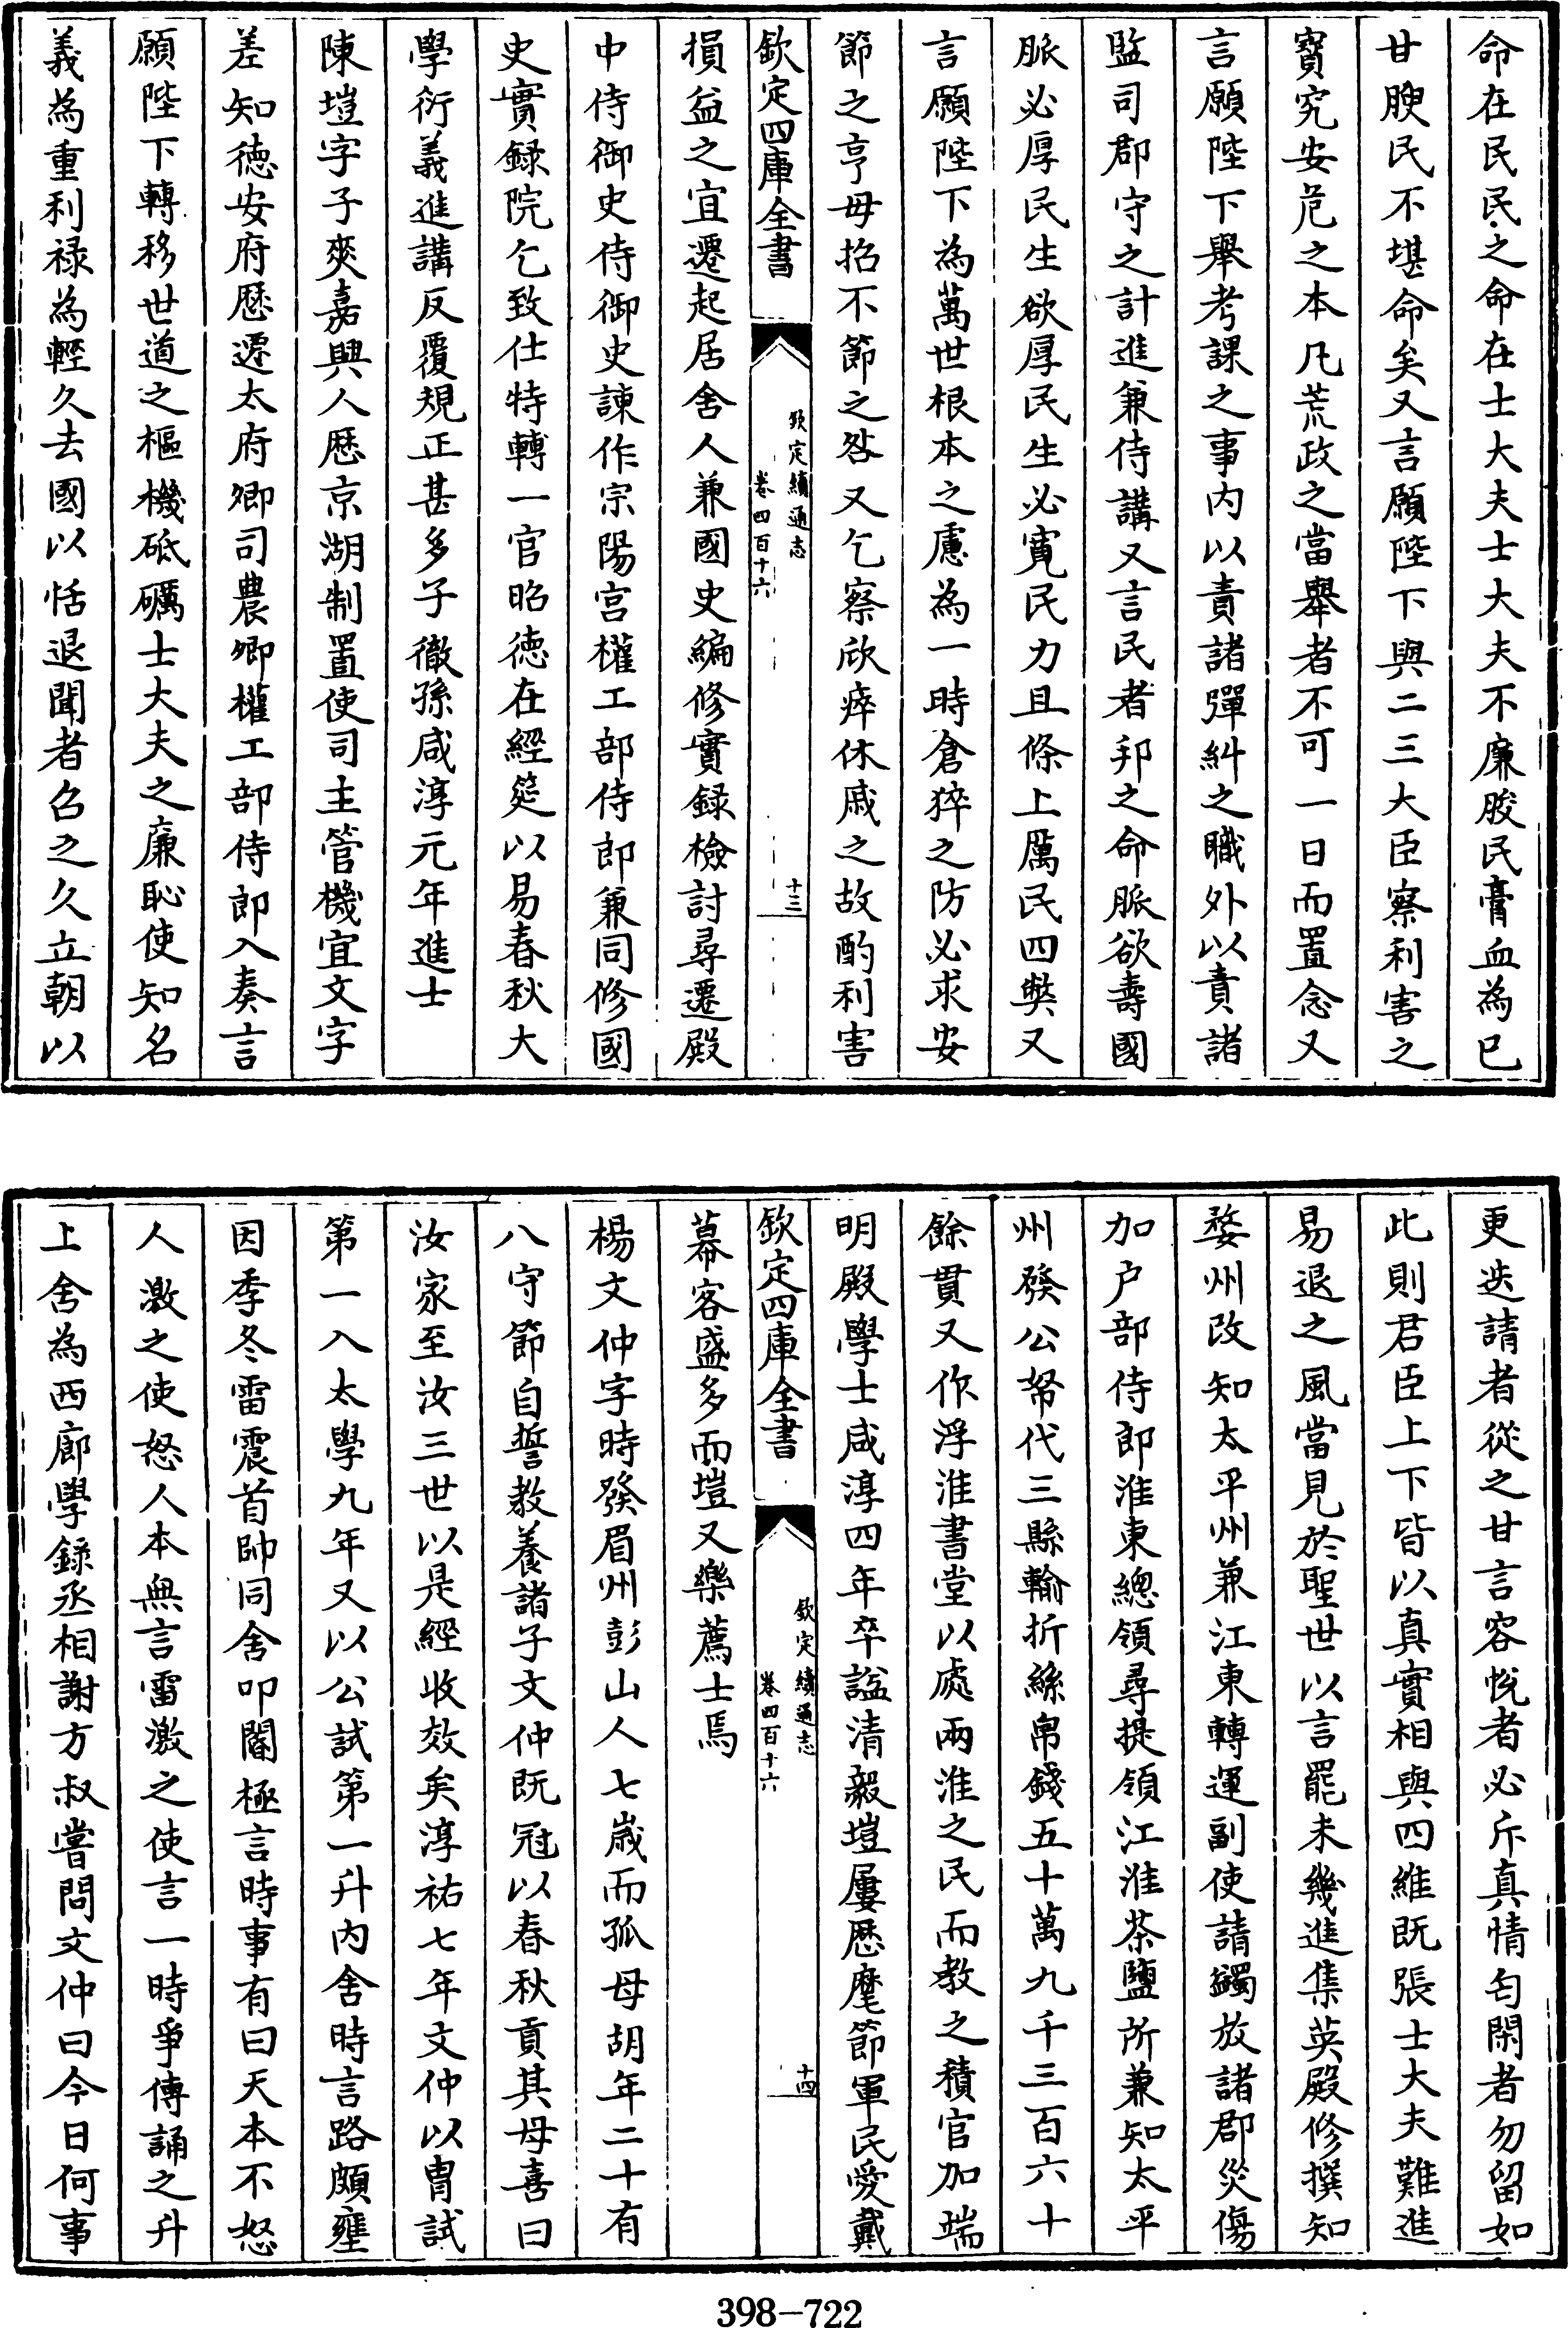 命在民民之命在士大夫士大夫不廉朘民膏血為已
甘腴民不堪命矣又言願陛下與二三大臣察利害之
實究安危之本凡荒政之當舉者不可一日而置念又
言願陛下舉考課之事内以責諸彈糾之職外以責諸
監司郡守之計進兼侍講又言民者邦之命脈欲壽國
脈必厚民生欲厚民生必寛民力且條上厲民四獘又
言願陛下為萬世根本之慮為一時倉猝之防必求安
節之亨毋招不節之咎又乞察欣瘁休戚之故酌利害
欽定四庫全書
欽定續通志
卷四百十六
十三
損益之宜遷起居舍人兼國史編修實録檢討尋遷殿
中侍御史侍御史諫作宗陽宫權工部侍郎兼同修國
史實録院乞致仕特轉一官昭徳在經筵以易春秋大
學衍義進講反覆規正甚多子徹孫咸淳元年進士
陳塏字子爽嘉興人歴京湖制置使司主管機宜文字
差知徳安府歴遷太府卿司農卿權工部侍郎入奏言
願陛下轉移世道之樞機砥礪士大夫之廉恥使知名
義為重利禄為輕久去國以恬退聞者召之久立朝以
更迭請者從之甘言容悦者必斥真情匄閑者勿留如
此則君臣上下皆以真實相與四維既張士大夫難進
易退之風當見於聖世以言罷未幾進集英殿修撰知
婺州改知太平州兼江東轉運副使請蠲放諸郡災傷
加户部侍郎淮東總領尋提領江淮茶鹽所兼知太平
州發公帑代三縣輸折絲帛錢五十萬九千三百六十
餘貫又作浮淮書堂以處兩淮之民而教之積官加端
明殿學士咸淳四年卒謚清毅塏屢歴麾節軍民愛戴
欽定四庫全書
欽定續通志
卷四百十六
十四
幕客盛多而塏又樂薦士焉
楊文仲字時發眉州彭山人七嵗而孤母胡年二十有
八守節自誓教養諸子文仲既冠以春秋貢其母喜曰
汝家至汝三世以是經收效矣淳祐七年文仲以胄試
第一入太學九年又以公試第一升内舍時言路頗壅
因季冬雷震首帥同舍叩閽極言時事有曰天本不怒
人激之使怒人本無言雷激之使言一時爭傳誦之升
上舍為西廊學録丞相謝方叔嘗問文仲曰今日何事
398-722